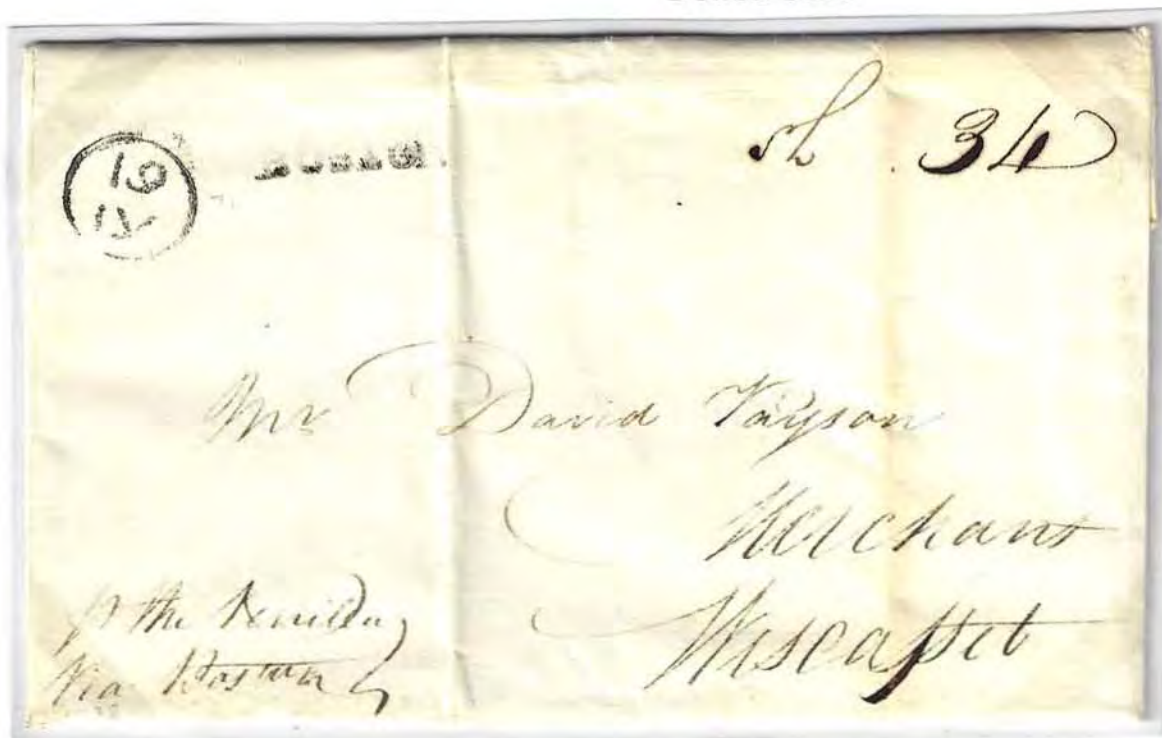 19
BOSTON
sh 34
Mr David Payson
Merchant
Wiscasset
p the
Via Boston